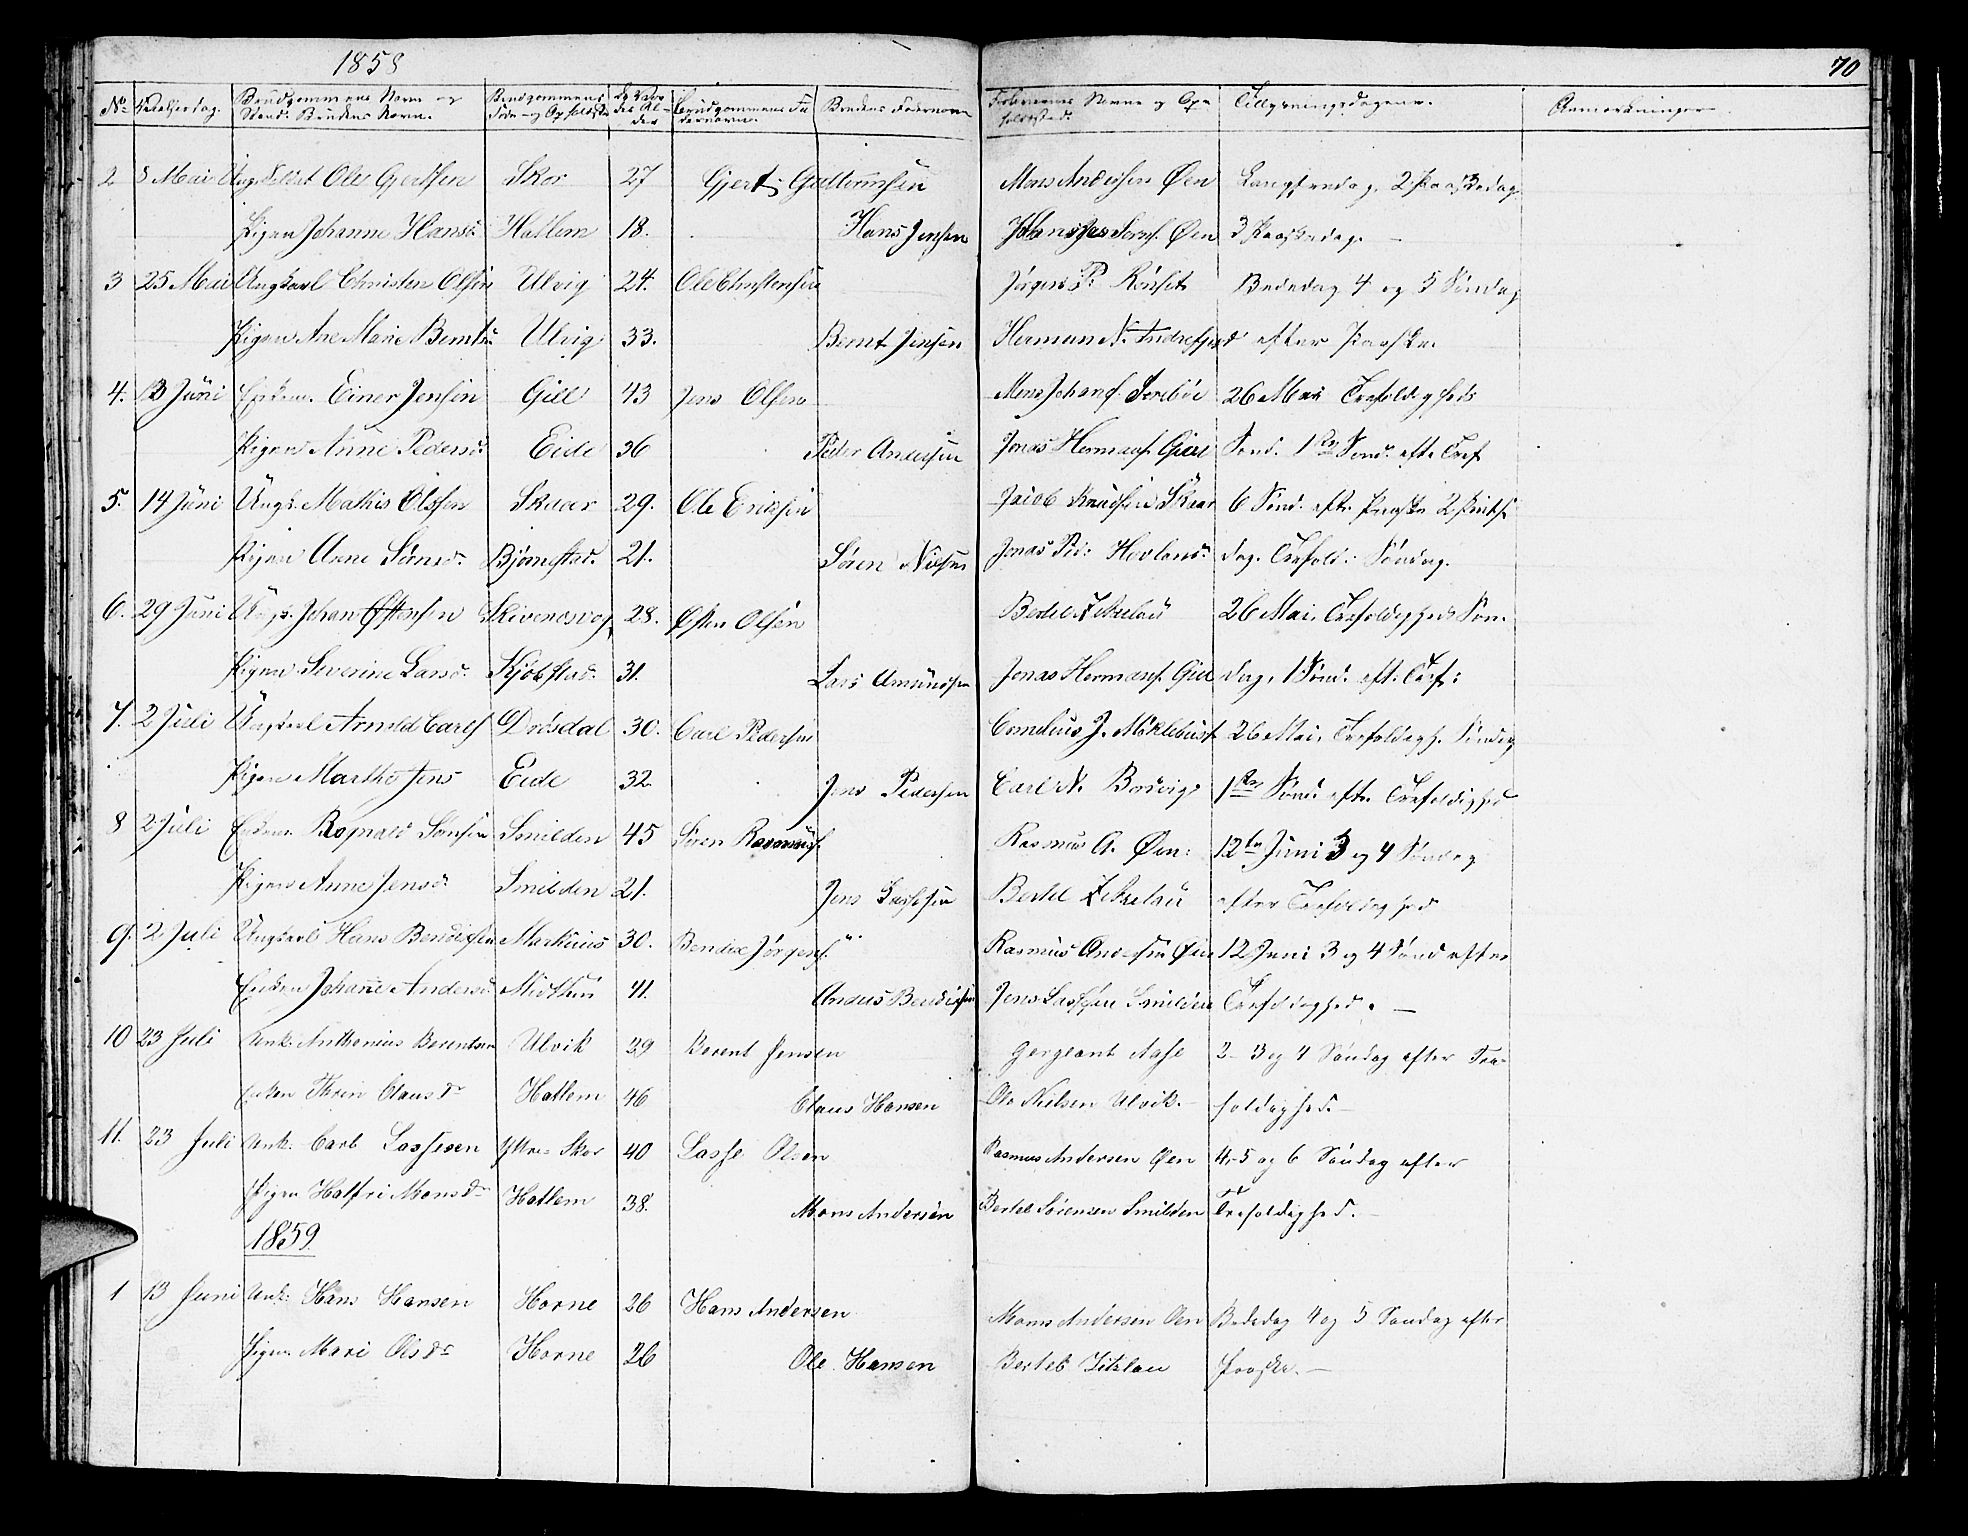 1858
70
No Vielsesdag. Brudgommens Navn og Stand. Brudens Navn. Brudgommens Føde- og Opholdsted Brudgommens Fadernavn. Brudens Fadernavn Forlovernes Navne og Opholdssted. Tillysningsdagene. Anmærkninger
2 8 Mai Ungkarl Ole Gjertsen Skor 27 Gjert Guttormsen Mons Andersen Øen Langfredag, 2 Paaskedag
Pigen Johanne Hansd. Hatlem 18. Hans Jensen Øen 3 Paaskedag. —
3 25 Mai Ungkarl Christen Olsen Ulvig 24. Ole Christensen Jørgen P. Rönset Bededag 4 og 5 Søndag
Pigen Ane Marie Berntsd. Ulvig 33. Bernt Jensen Herman N. efter Paaske.
4. 13 Juni Enkem. Einer Jensen Gill 43 Jens Olsen Mons Johans. 26 Mai Trefoldigheds
Pigen Anne Pedersd. Eide 36 Peder Andersen Jonas Hermans. Gill Sønd. 1ste Sønd. efte Tref
5. 14 Juni Ungk. Mathis Olssen Skaar 29. Ole Ericksen Jacob Knudsen Skaar 6 Sønd. eft. Paaske 2 Pintse
Pigen Anne Sörensd. Björnstad. 21. Sören Nilsen Jonas Ped: Hovland. dag. Trefold: Søndag.
6. 29 Juni Ungk. Johan Østensen Skivenesvog 28. Østen Olsen Bertel Zetzelau 26 Mai. Trefoldigheds Søn-
Pigen Severine Larsd. Kjöbstad. 31. Lars Amundsen Jonas Hermans. Gill dag, 1 Sønd. eft. Tref:
7. 2 Juli Ungkarl Arnold Carls Drösdal 30. Carl Pedersen Cornelius J. Möklebust 26 Mai. Trefoldigh. Søndag
Pigen Marthe Jens Eide 32 Jens Pedersen Carl N. Bosvig 1ste Sønd. eft. Trefoldighed
8 2 Juli Enkem. Rognald Sörensen Smilden 45 Sören Rasmus. Rasmus A. Øen: 12te Juni 3 og 4 Søndag
Pigen Anne Jensd: Smilden 21. Jens Lassesen Bertel Zetzelau efter Trefoldighed
9. 2 Juli Ungkarl Hans Bendixsen Markhus 30. Bendix Jörgens. Rasmus Andersen Øen 12 Juni 3 og 4 Sønd efter
Enken Johanne Andersd. Midthun 41. Anders Bendixsen Jens Lassesen Smilden Trefoldighed. —
10 23 Juli Unk. Anthonius Berentsen Ulvik 29 Berent Jensen Sergeant Aase 2- 3 og 4 Søndag efter Tre-
Enken Thrin Clausdr Hatlem 46 Claus Hansen Ole Nielsen Ulvik. — foldighed. —
11. 23 Juli Unk. Carl Lassesen Yttre Skor 40 Lasse Olsen Rasmus Andersen Øen 4- 5 og 6 Søndag efter
Pigen Halfri Monsdr Hatlem 38. Mons Andersen Bertel Sörensen Smilden Trefoldighed. —
1859.
1 13 Juni Unk: Hans Hansen Horne 26 Hans Andersen Mons Andersen Øen Bededag 4 og 5 Søndag efter
Pigen Mari Olsdr Horne 26 Ole Hansen Bertel Zitzlau Paaske. —